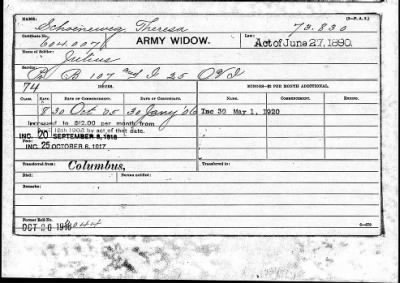 NAME: (3-P.A.S.)
Schoeneweg Theresa 73.830
Certificate No. ARMY WIDOW. Law:
604.007 Act of June 27, 1890.
Name of Soldier:
Julius
Service:
B 107 and I 25 OVI
74 ISSUES. MINORS—$2 PER MONTH ADDITIONAL.
CLASS. RATE. DATE OF COMMENCEMENT. DATE OF CERTIFICATE. NAME. COMMENCEMENT. ENDING.
8 30 Oct 05 30 Jany '06 Inc 30 May 1, 1920
Increased to $12.00 per month from
April 19th 1908 by act of that date.
INC. 20 SEPTEMBER 8, 1916
INC. 25 OCTOBER 6, 1917
Transferred from Columbus, Transferred to:
Died: Bureau notified:
Remarks:
Former Roll No.
OCT 20 1916 6—879